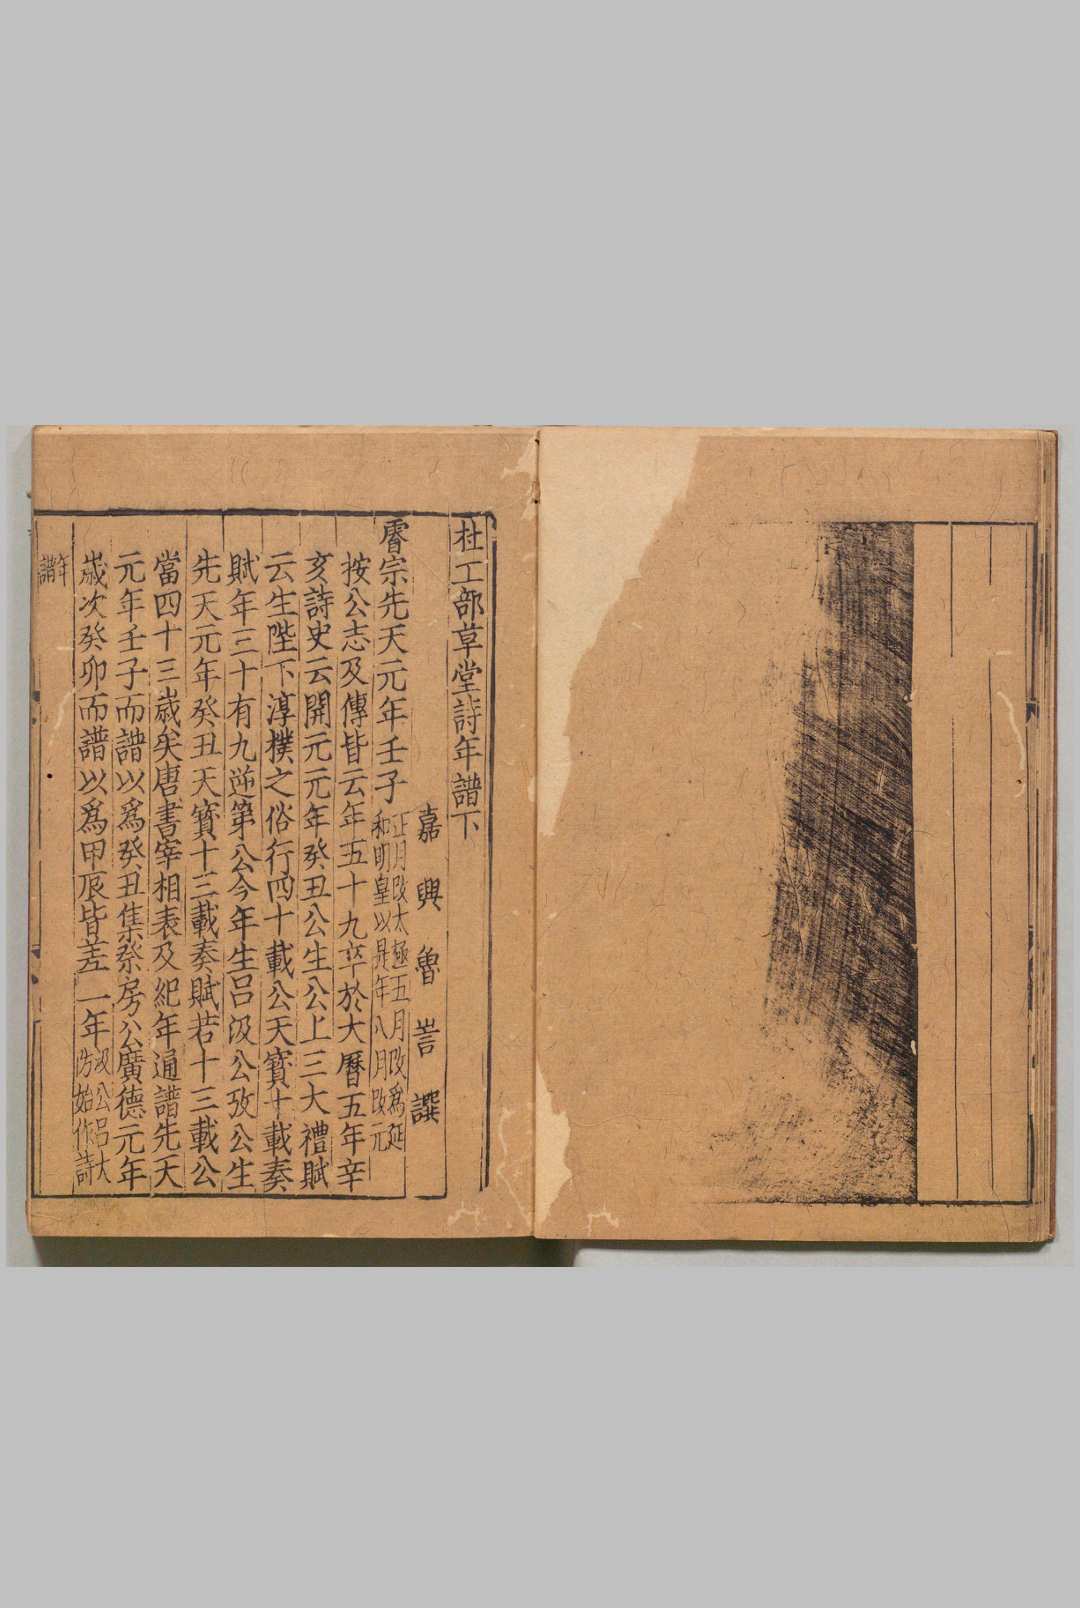 杜工部草堂詩年譜下
嘉興魯訔譔
睿宗先天元年壬子正月改太極五月改爲延
和明皇以是年八月改元
按公志及傳皆云年五十九卒於大曆五年辛
亥詩史云開元元年癸丑公生公上三大禮賦
云生陛下淳樸之俗行四十載公天寶十載奏
賦年三十有九逆筭公今年生呂汲公攷公生
先天元年癸丑天寶十三載奏賦若十三載公
當四十三歲矣唐書宰相表及紀年通譜先天
元年壬子而譜以爲癸丑集祭房公廣德元年
歲次癸卯而譜以爲甲辰皆差一年汲公呂大
防始作詩
年
譜